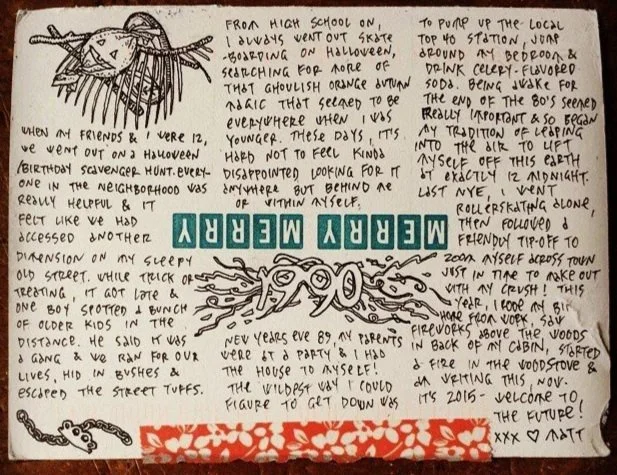 WHEN MY FRIENDS & I WERE 12,
WE WENT OUT ON A HALLOWEEN
/BIRTHDAY SCAVENGER HUNT. EVERY-
ONE IN THE NEIGHBORHOOD WAS
REALLY HELPFUL & IT
FELT LIKE WE HAD
ACCESSED ANOTHER
DIMENSION ON MY SLEEPY
OLD STREET. WHILE TRICK OR
TREATING, IT GOT LATE &
ONE BOY SPOTTED A BUNCH
OF OLDER KIDS IN THE
DISTANCE. HE SAID IT WAS
A GANG & WE RAN FOR OUR
LIVES, HID IN BUSHES &
ESCAPED THE STREET TUFFS.
FROM HIGH SCHOOL ON,
I ALWAYS WENT OUT SKATE
-BOARDING ON HALLOWEEN,
SEARCHING FOR MORE OF
THAT GHOULISH ORANGE AUTUMN
MAGIC THAT SEEMED TO BE
EVERYWHERE WHEN I WAS
YOUNGER. THESE DAYS, IT'S
HARD NOT TO FEEL KINDA
DISAPPOINTED LOOKING FOR IT
ANYWHERE BUT BEHIND ME
OR WITHIN MYSELF.
MERRY MERRY
1990
NEW YEARS EVE 89, MY PARENTS
WERE AT A PARTY & I HAD
THE HOUSE TO MYSELF!
THE WILDEST WAY I COULD
FIGURE TO GET DOWN WAS
TO PUMP UP THE LOCAL
TOP 40 STATION, JUMP
AROUND MY BEDROOM &
DRINK CELERY-FLAVORED
SODA. BEING AWAKE FOR
THE END OF THE 80'S SEEMED
REALLY IMPORTANT & SO BEGAN
MY TRADITION OF LEAPING
INTO THE AIR TO LIFT
MYSELF OFF THIS EARTH
AT EXACTLY 12 MIDNIGHT.
LAST NYE, I WENT
ROLLERSKATING ALONE,
THEN FOLLOWED A
FRIENDLY TIP-OFF TO
ZOOM MYSELF ACROSS TOWN
JUST IN TIME TO MAKE OUT
WITH MY CRUSH! THIS
YEAR, I RODE MY BIKE
HOME FROM WORK, SAW
FIREWORKS ABOVE THE WOODS
IN BACK OF MY CABIN, STARTED
A FIRE IN THE WOODSTOVE &
AM WRITING THIS, NOW.
IT'S 2015- WELCOME TO
THE FUTURE!
XXX ♡ MATT